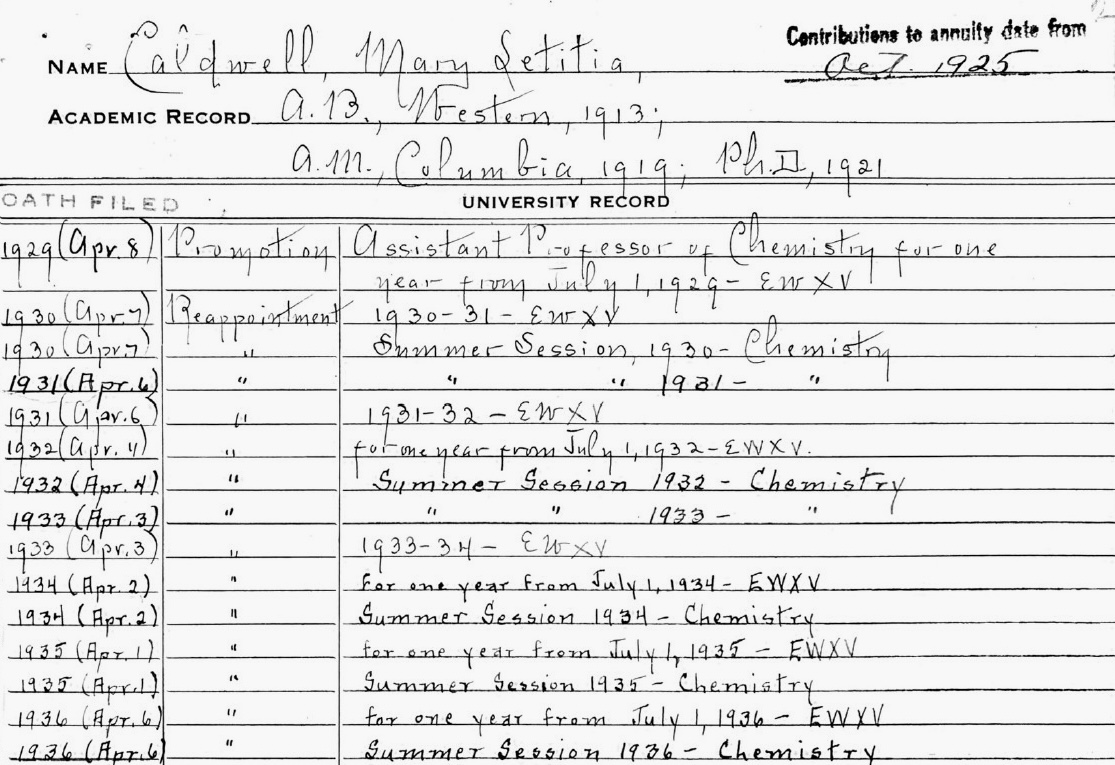 Contributions to annuity date from
Oct. 1925
NAME Caldwell, Mary Letitia,
ACADEMIC RECORD A.B., Western, 1913;
A.M., Columbia, 1919; Ph.D, 1921
OATH FILED
UNIVERSITY RECORD
1929 (Apr. 8) Promotion Assistant Professor of Chemistry for one
year from July 1, 1929 - EWXV
1930 (Apr. 7) Reappointment 1930-31 - EWXV
1930 (Apr. 7) " Summer Session, 1930 - Chemistry
1931 (Apr. 6) " " " 1931 - "
1931 (Apr. 6) " 1931-32 - EWXV
1932 (Apr. 4) " for one year from July 1, 1932 - EWXV.
1932 (Apr. 4) " Summer Session 1932 - Chemistry
1933 (Apr. 3) " " " 1933 - "
1933 (Apr. 3) " 1933-34 - EWXV
1934 (Apr. 2) " for one year from July 1, 1934 - EWXV
1934 (Apr. 2) " Summer Session 1934 - Chemistry
1935 (Apr. 1) " for one year from July 1, 1935 - EWXV
1935 (Apr. 1) " Summer Session 1935 - Chemistry
1936 (Apr. 6) " for one year from July 1, 1936 - EWXV
1936 (Apr. 6) " Summer Session 1936 - Chemistry